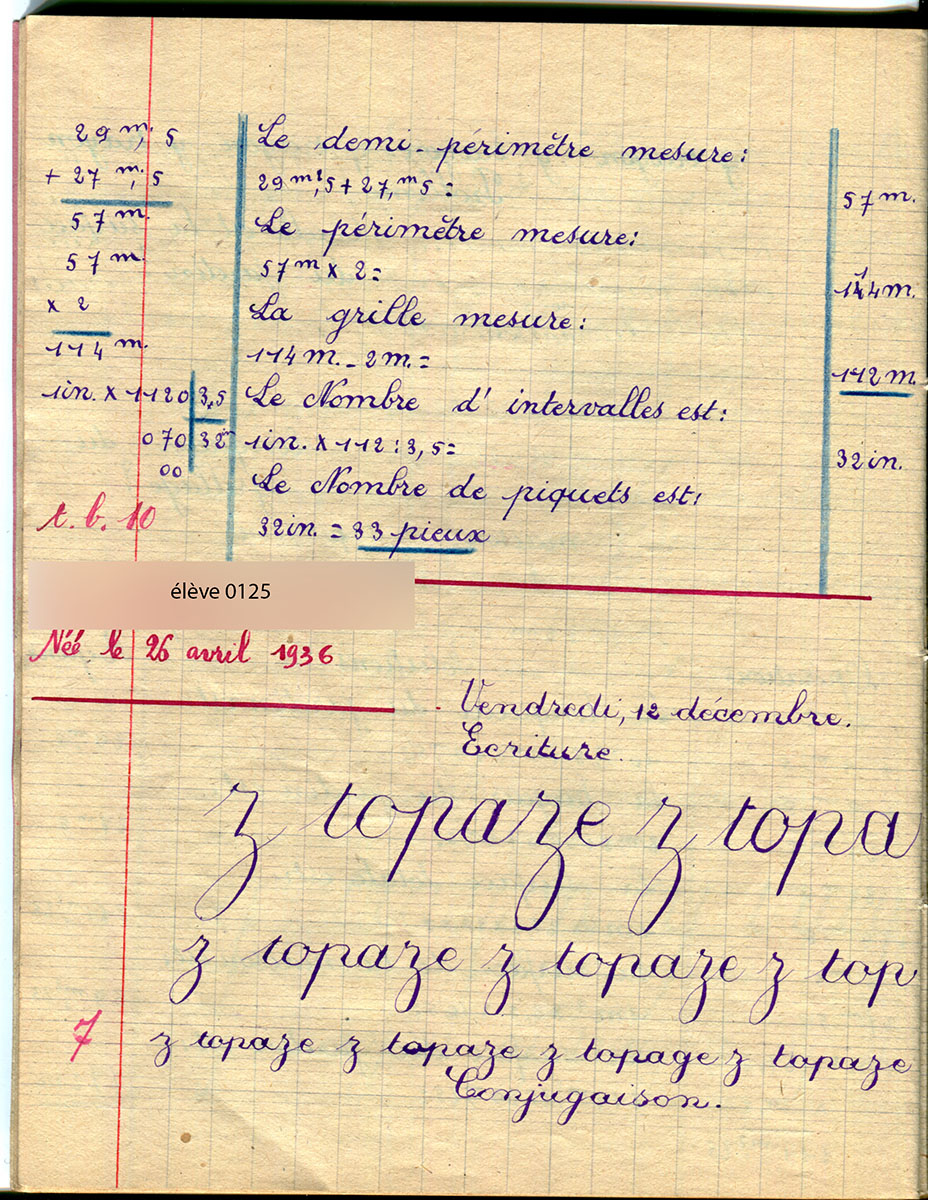 29 m, 5
+ 27 m, 5
57 m.
57 m.
x 2
114 m.
1in. x 1120 3,5
070 32in
00
t. b. 10
Le demi-périmètre mesure:
29 m, 5 + 27, m 5 =
57 m.
Le périmètre mesure:
57 m x 2 =
114 m.
La grille mesure:
114 m. - 2 m. =
112 m.
Le Nombre d'intervalles est:
1in. x 112 : 3,5 =
32 in.
Le Nombre de piquets est:
32in. = 33 pieux
élève 0125
Néé le 26 avril 1936
Vendredi, 12 décembre.
Ecriture.
z topaze z topa
z topaze z topaze z top
7
z topaze z topaze z topage z topaze
Conjugaison.